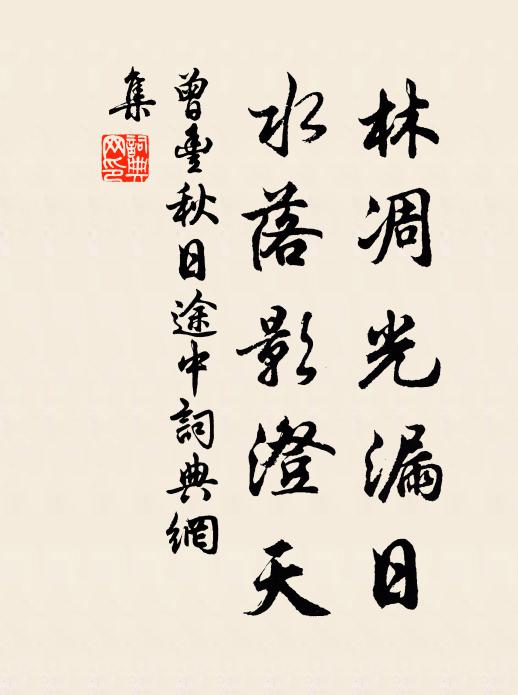 林凋光漏日
水落影澄天
曾豊秋日途中詞典網
集
詞典
网印